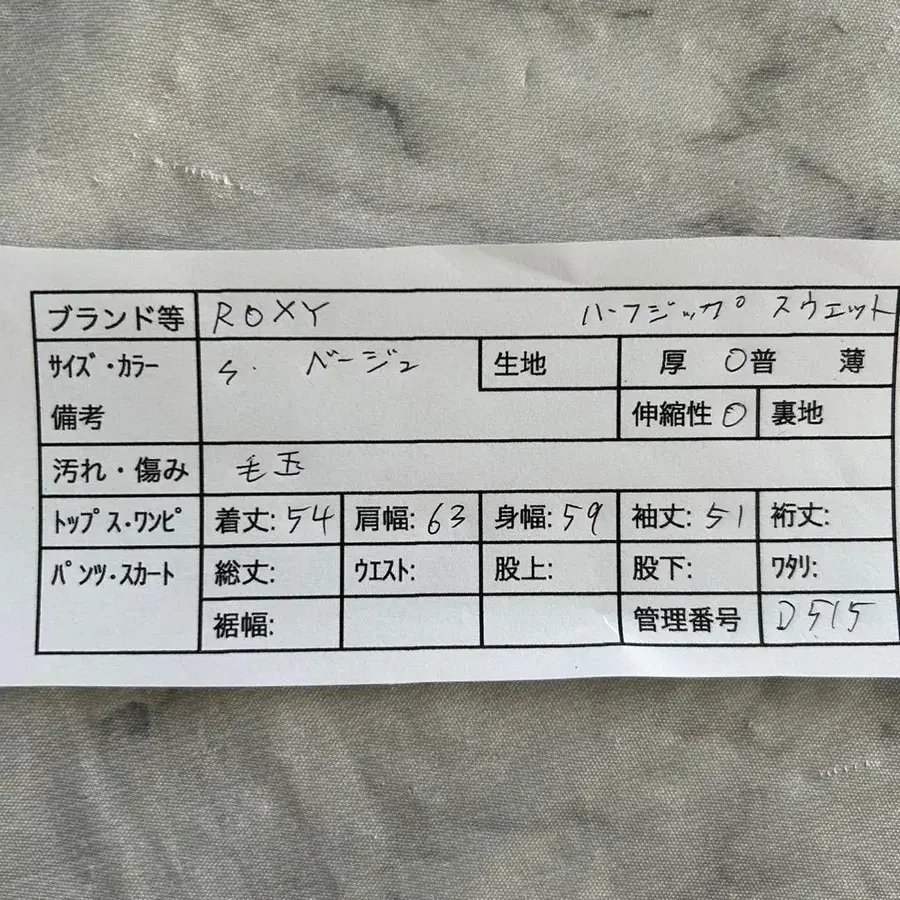 ブランド等 ROXY ハーフジップ スウェット
サイズ・カラー S. ベージュ 生地 厚 〇普 薄
備考 伸縮性〇 裏地
汚れ・傷み 毛玉
トップス・ワンピ 着丈:54 肩幅:63 身幅:59 袖丈:51 裄丈:
パンツ・スカート 総丈: ウエスト: 股上: 股下: ワタリ:
裾幅: 管理番号 D515